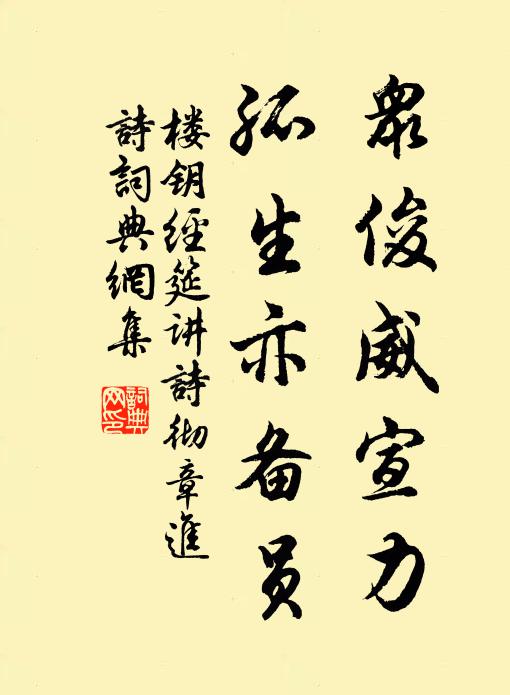 眾俊威宣力
孤生亦备员
楼钥經筵讲詩彻章進
詩詞典網集
詞典
网印